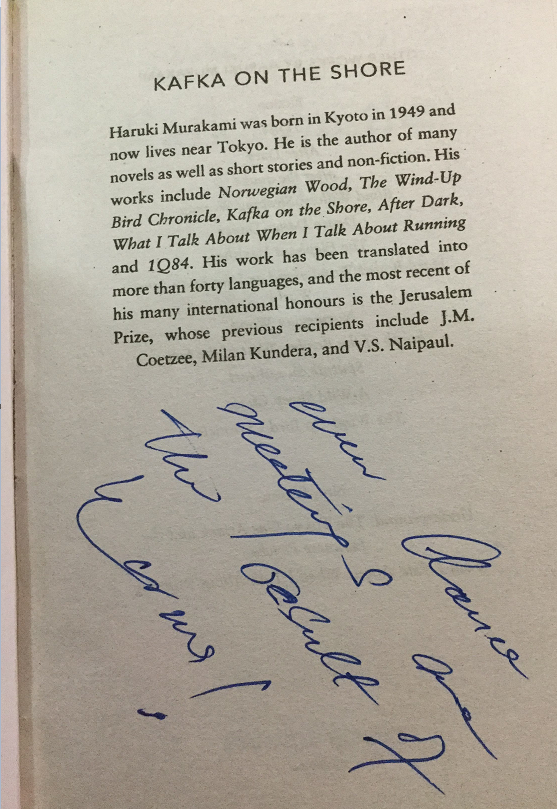 KAFKA ON THE SHORE
Haruki Murakami was born in Kyoto in 1949 and
now lives near Tokyo. He is the author of many
novels as well as short stories and non-fiction. His
works include Norwegian Wood, The Wind-Up
Bird Chronicle, Kafka on the Shore, After Dark,
What I Talk About When I Talk About Running
and 1Q84. His work has been translated into
more than forty languages, and the most recent of
his many international honours is the Jerusalem
Prize, whose previous recipients include J.M.
Coetzee, Milan Kundera, and V.S. Naipaul.
even Chance
meetings are
the result of
karma!